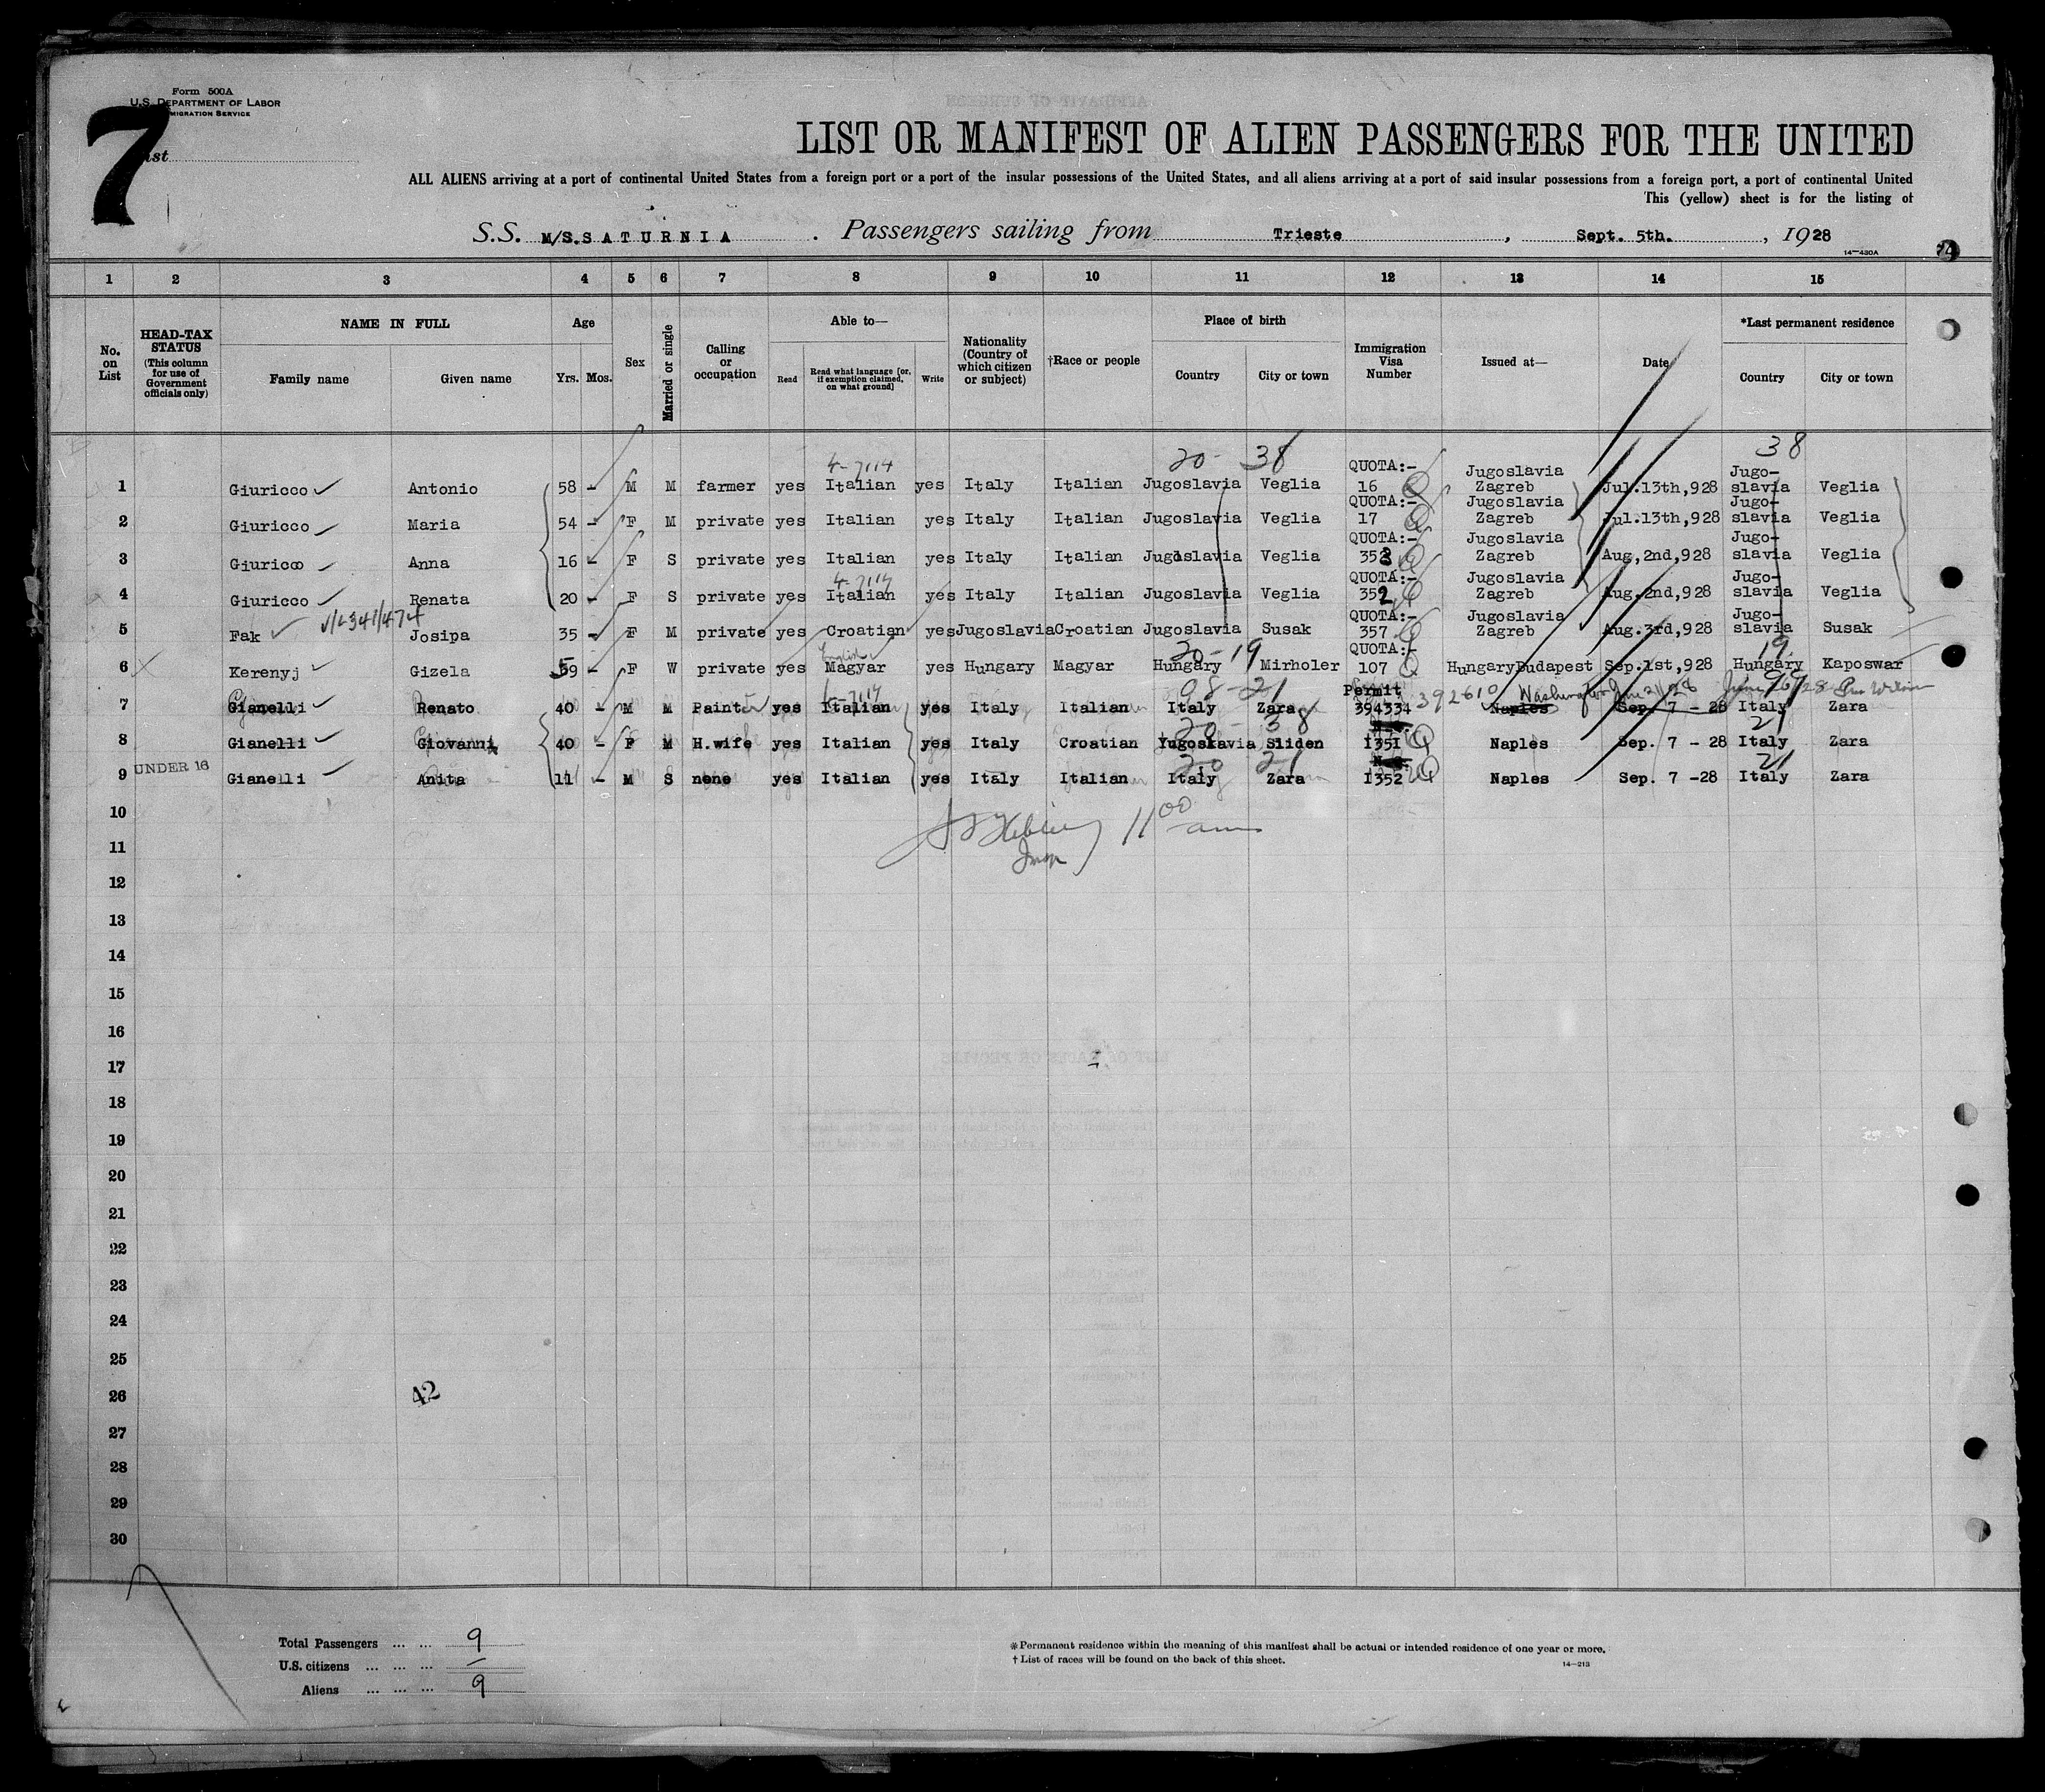 Form 500A
U.S. DEPARTMENT OF LABOR
MIGRATION SERVICE
7
LIST OR MANIFEST OF ALIEN PASSENGERS FOR THE UNITED
ALL ALIENS arriving at a port of continental United States from a foreign port or a port of the insular possessions of the United States, and all aliens arriving at a port of said insular possessions from a foreign port, a port of continental United
This (yellow) sheet is for the listing of
S.S. M/S.SATURNIA. Passengers sailing from Trieste, Sept. 5th., 1928
14—430A
1 2 3 4 5 6 7 8 9 10 11 12 13 14 15
No. on List
HEAD-TAX STATUS (This column for use of Government officials only)
NAME IN FULL Family name Given name
Age Yrs. Mos.
Sex
Married or single
Calling or occupation
Able to— Read Read what language [or, if exemption claimed, on what ground] Write
Nationality (Country of which citizen or subject)
†Race or people
Place of birth Country City or town
Immigration Visa Number
Issued at—
Date
*Last permanent residence Country City or town
4-7114 20- 38 38
1 Giuricco Antonio 58 - M M farmer yes Italian yes Italy Italian Jugoslavia Veglia QUOTA:- 16 Jugoslavia Zagreb Jul.13th,928 Jugo-slavia Veglia
2 Giuricco Maria 54 - F M private yes Italian yes Italy Italian Jugoslavia Veglia QUOTA:- 17 Jugoslavia Zagreb Jul.13th,928 Jugo-slavia Veglia
3 Giuricco Anna 16 - F S private yes Italian yes Italy Italian Jugoslavia Veglia QUOTA:- 353 Jugoslavia Zagreb Aug,2nd,928 Jugo-slavia Veglia
4-7114
4 Giuricco Renata 20 - F S private yes Italian yes Italy Italian Jugoslavia Veglia QUOTA:- 352 Jugoslavia Zagreb Aug.2nd,928 Jugo-slavia Veglia
5 Fak Josipa 35 - F M private yes Croatian yes Jugoslavia Croatian Jugoslavia Susak QUOTA:- 357 Jugoslavia Zagreb Aug.3rd,928 Jugo-slavia Susak
English 20-19 19
6 Kerenyj Gizela 59 - F W private yes Magyar yes Hungary Magyar Hungary Mirholer QUOTA:- 107 Hungary Budapest Sep.1st,928 Hungary Kaposwar
4-7114 08-21 392610 Washington
7 Gianelli Renato 40 - M M Painter yes Italian yes Italy Italian Italy Zara Permit 394334 Naples Sep. 7 - 28 Italy Zara
20-38 21
8 Gianelli Giovanni 40 - F M H.wife yes Italian yes Italy Croatian Yugoskavia Sliden 1351 Naples Sep. 7 - 28 Italy Zara
20 21 21
9 UNDER 16 Gianelli Anita 11 - M S none yes Italian yes Italy Italian Italy Zara 1352 Naples Sep. 7 -28 Italy Zara
10
11 00
11
12
13
14
15
16
17
18
19
20
21
22
23
24
25
26
42
27
28
29
30
Total Passengers ... ... 9
U.S. citizens ... ... ... —
Aliens ... ... ... 9
*Permanent residence within the meaning of this manifest shall be actual or intended residence of one year or more.
† List of races will be found on the back of this sheet.
14—213